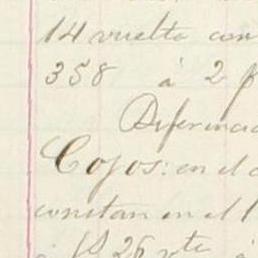 14 vuelta con
358 á 2 p
Diferencia
Cojos: en el c
constan en el l
18 26 vta á